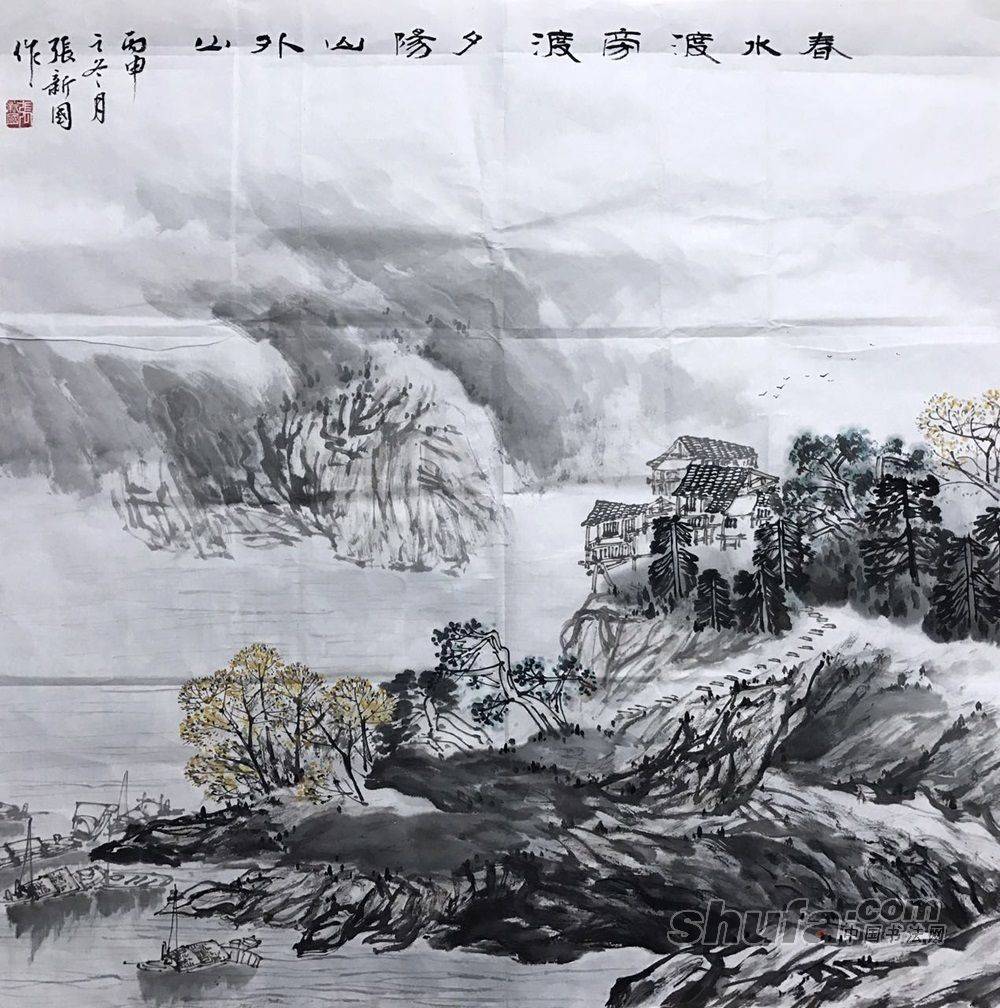 春水渡旁渡夕陽山外山
丙申
之冬月
張新國
作
張新國
shufa.com
中国书法网